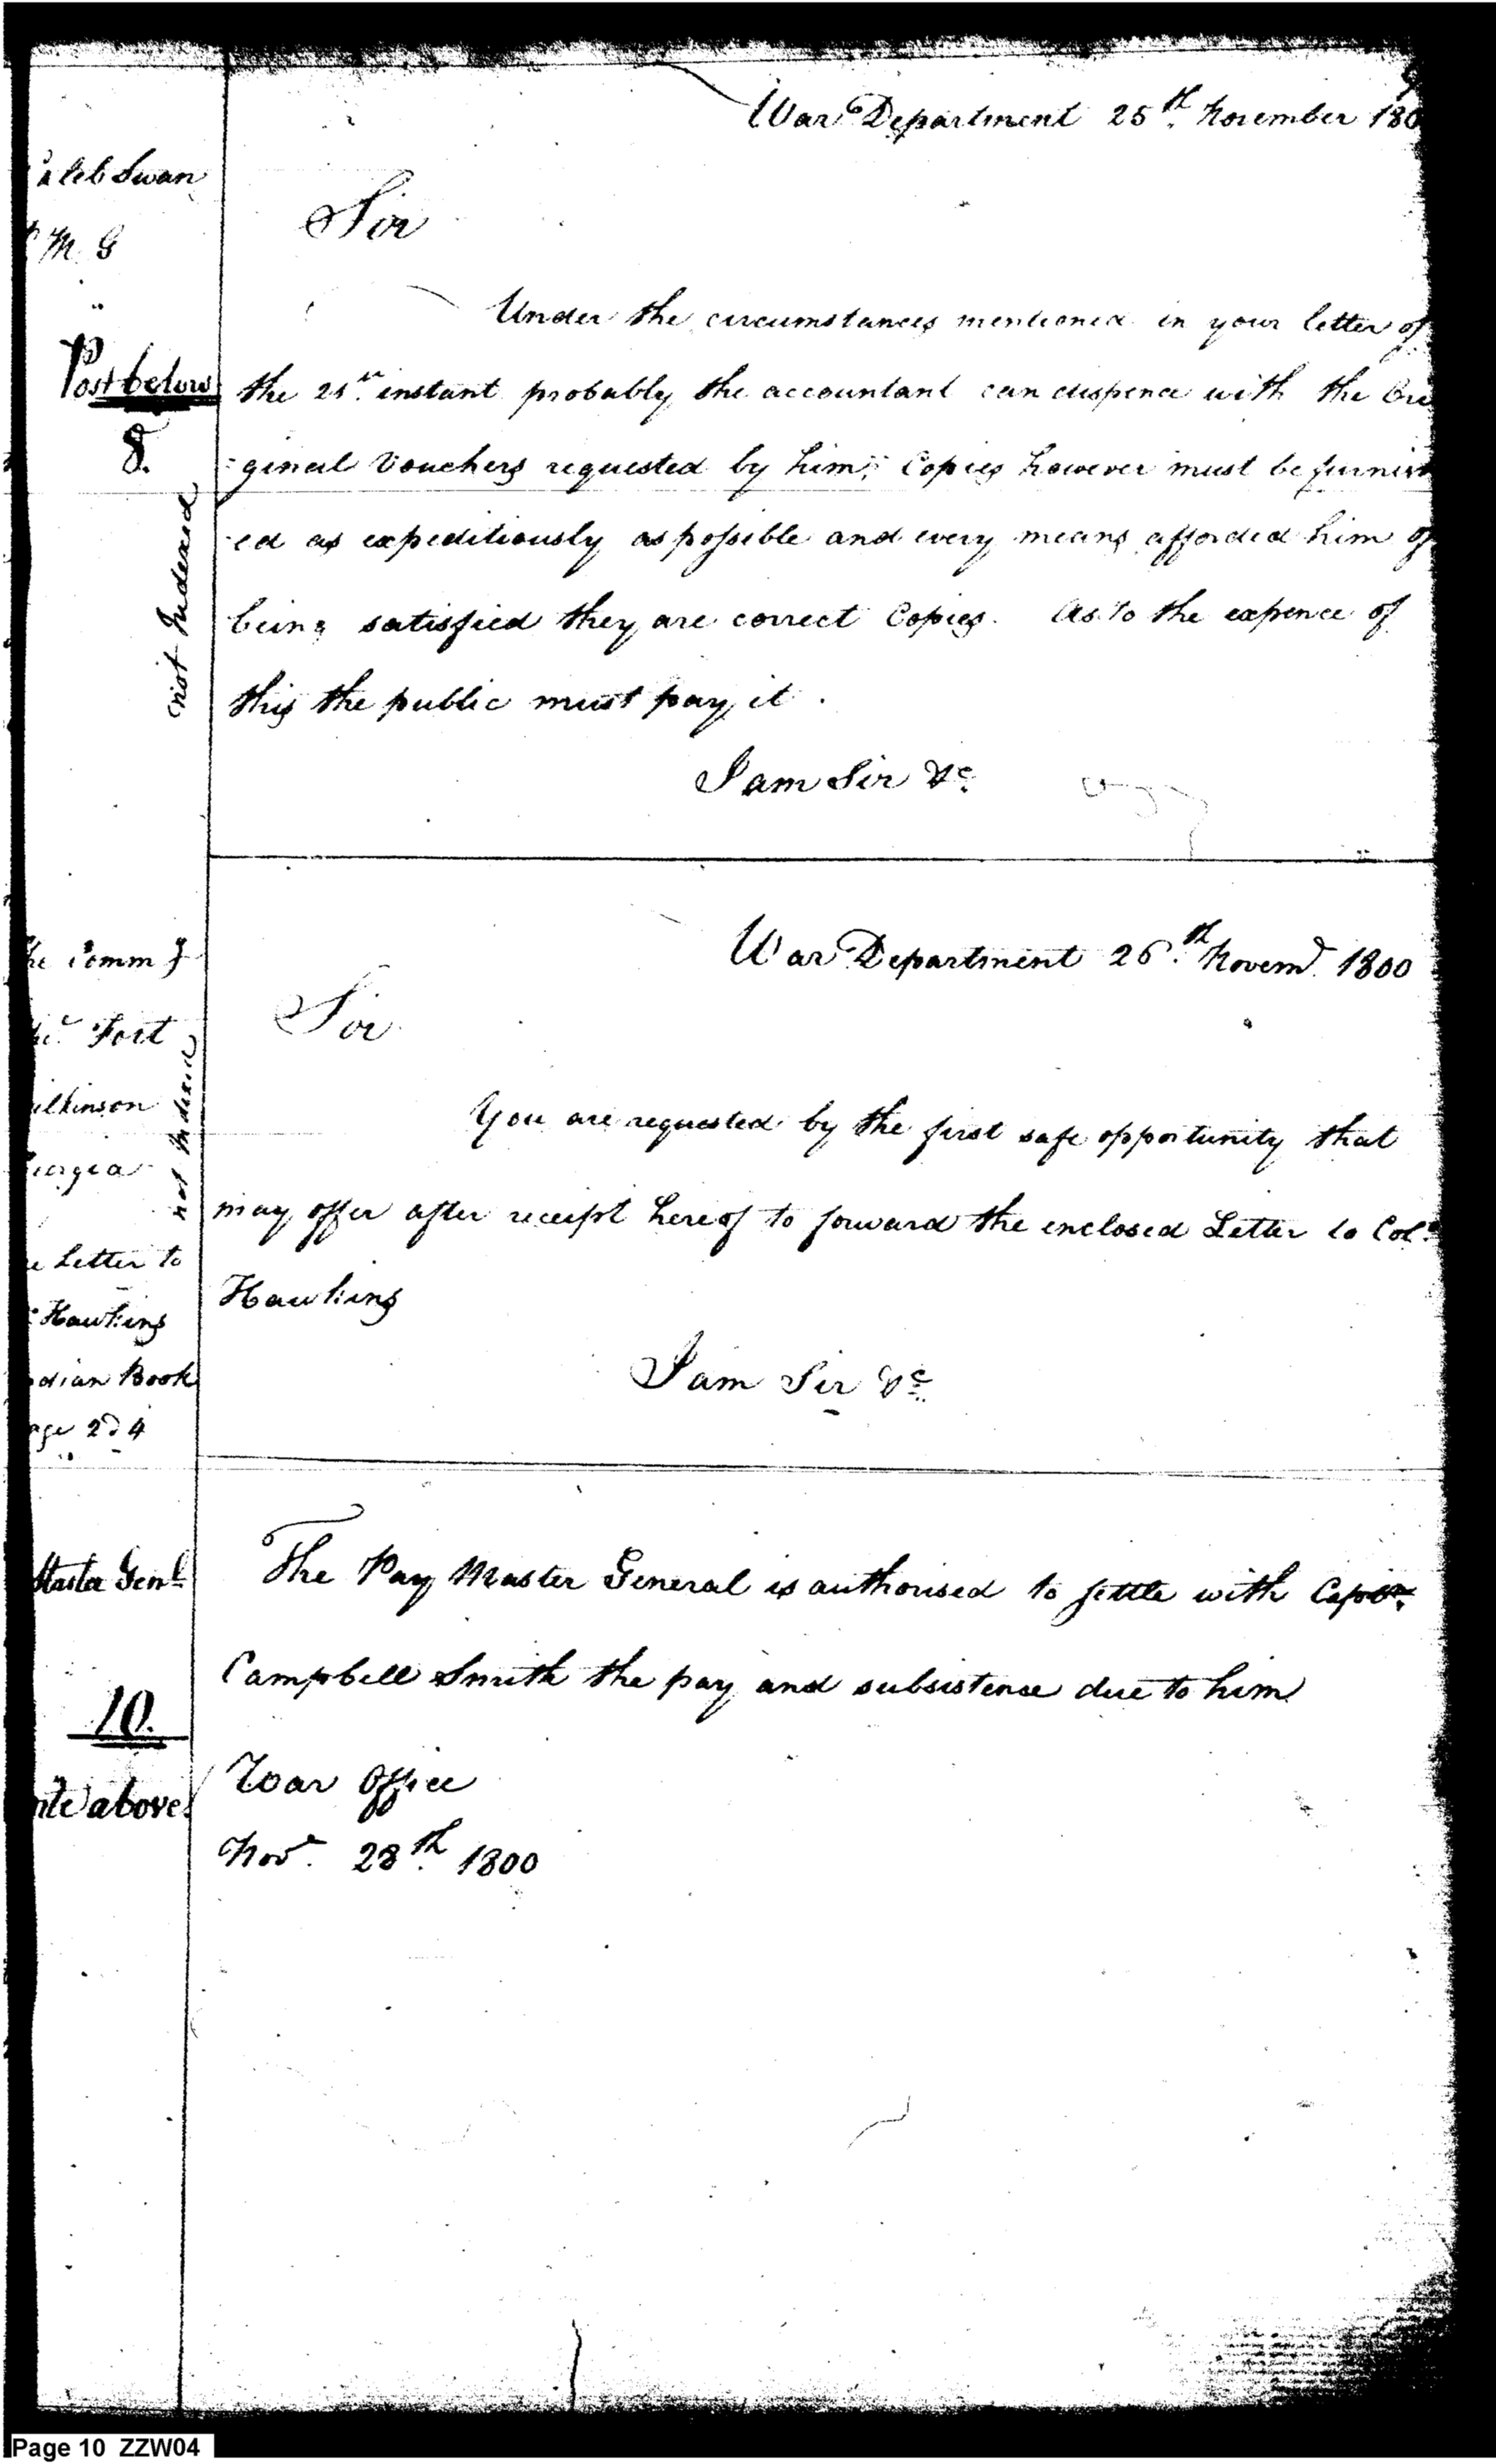 9
War Department 25th. November 180
aleb Swan
Sir
M. G
Under the circumstances mentioned in your letter of
Post below
the 25th. instant probably the accountant can dispence with the Ori
8.
:ginal Vouchers requested by him; Copies however must be furnish
not Indexed
-ed as expeditiously as possible and every means afforded him of
being satisfied they are correct Copies. As to the expence of
this the public must pay it.
I am Sir &c.
War Department 26.th Novemr. 1800
he Comm g
Sir
Fort
ilkinson
not Indexed
You are requested by the first safe opportunity that
eorgia
may offer after receipt hereof to forward the enclosed Letter to Colo.
e Letter to
Hawkins
Hawkins
dian Book
I am Sir &c.
age 224
Master Genl.
The Pay Master General is authorised to settle with Capt.
Campbell Smith the pay and subsistence due to him
10.
War Office
nte above.
Novr. 28th. 1800
Page 10 ZZW04